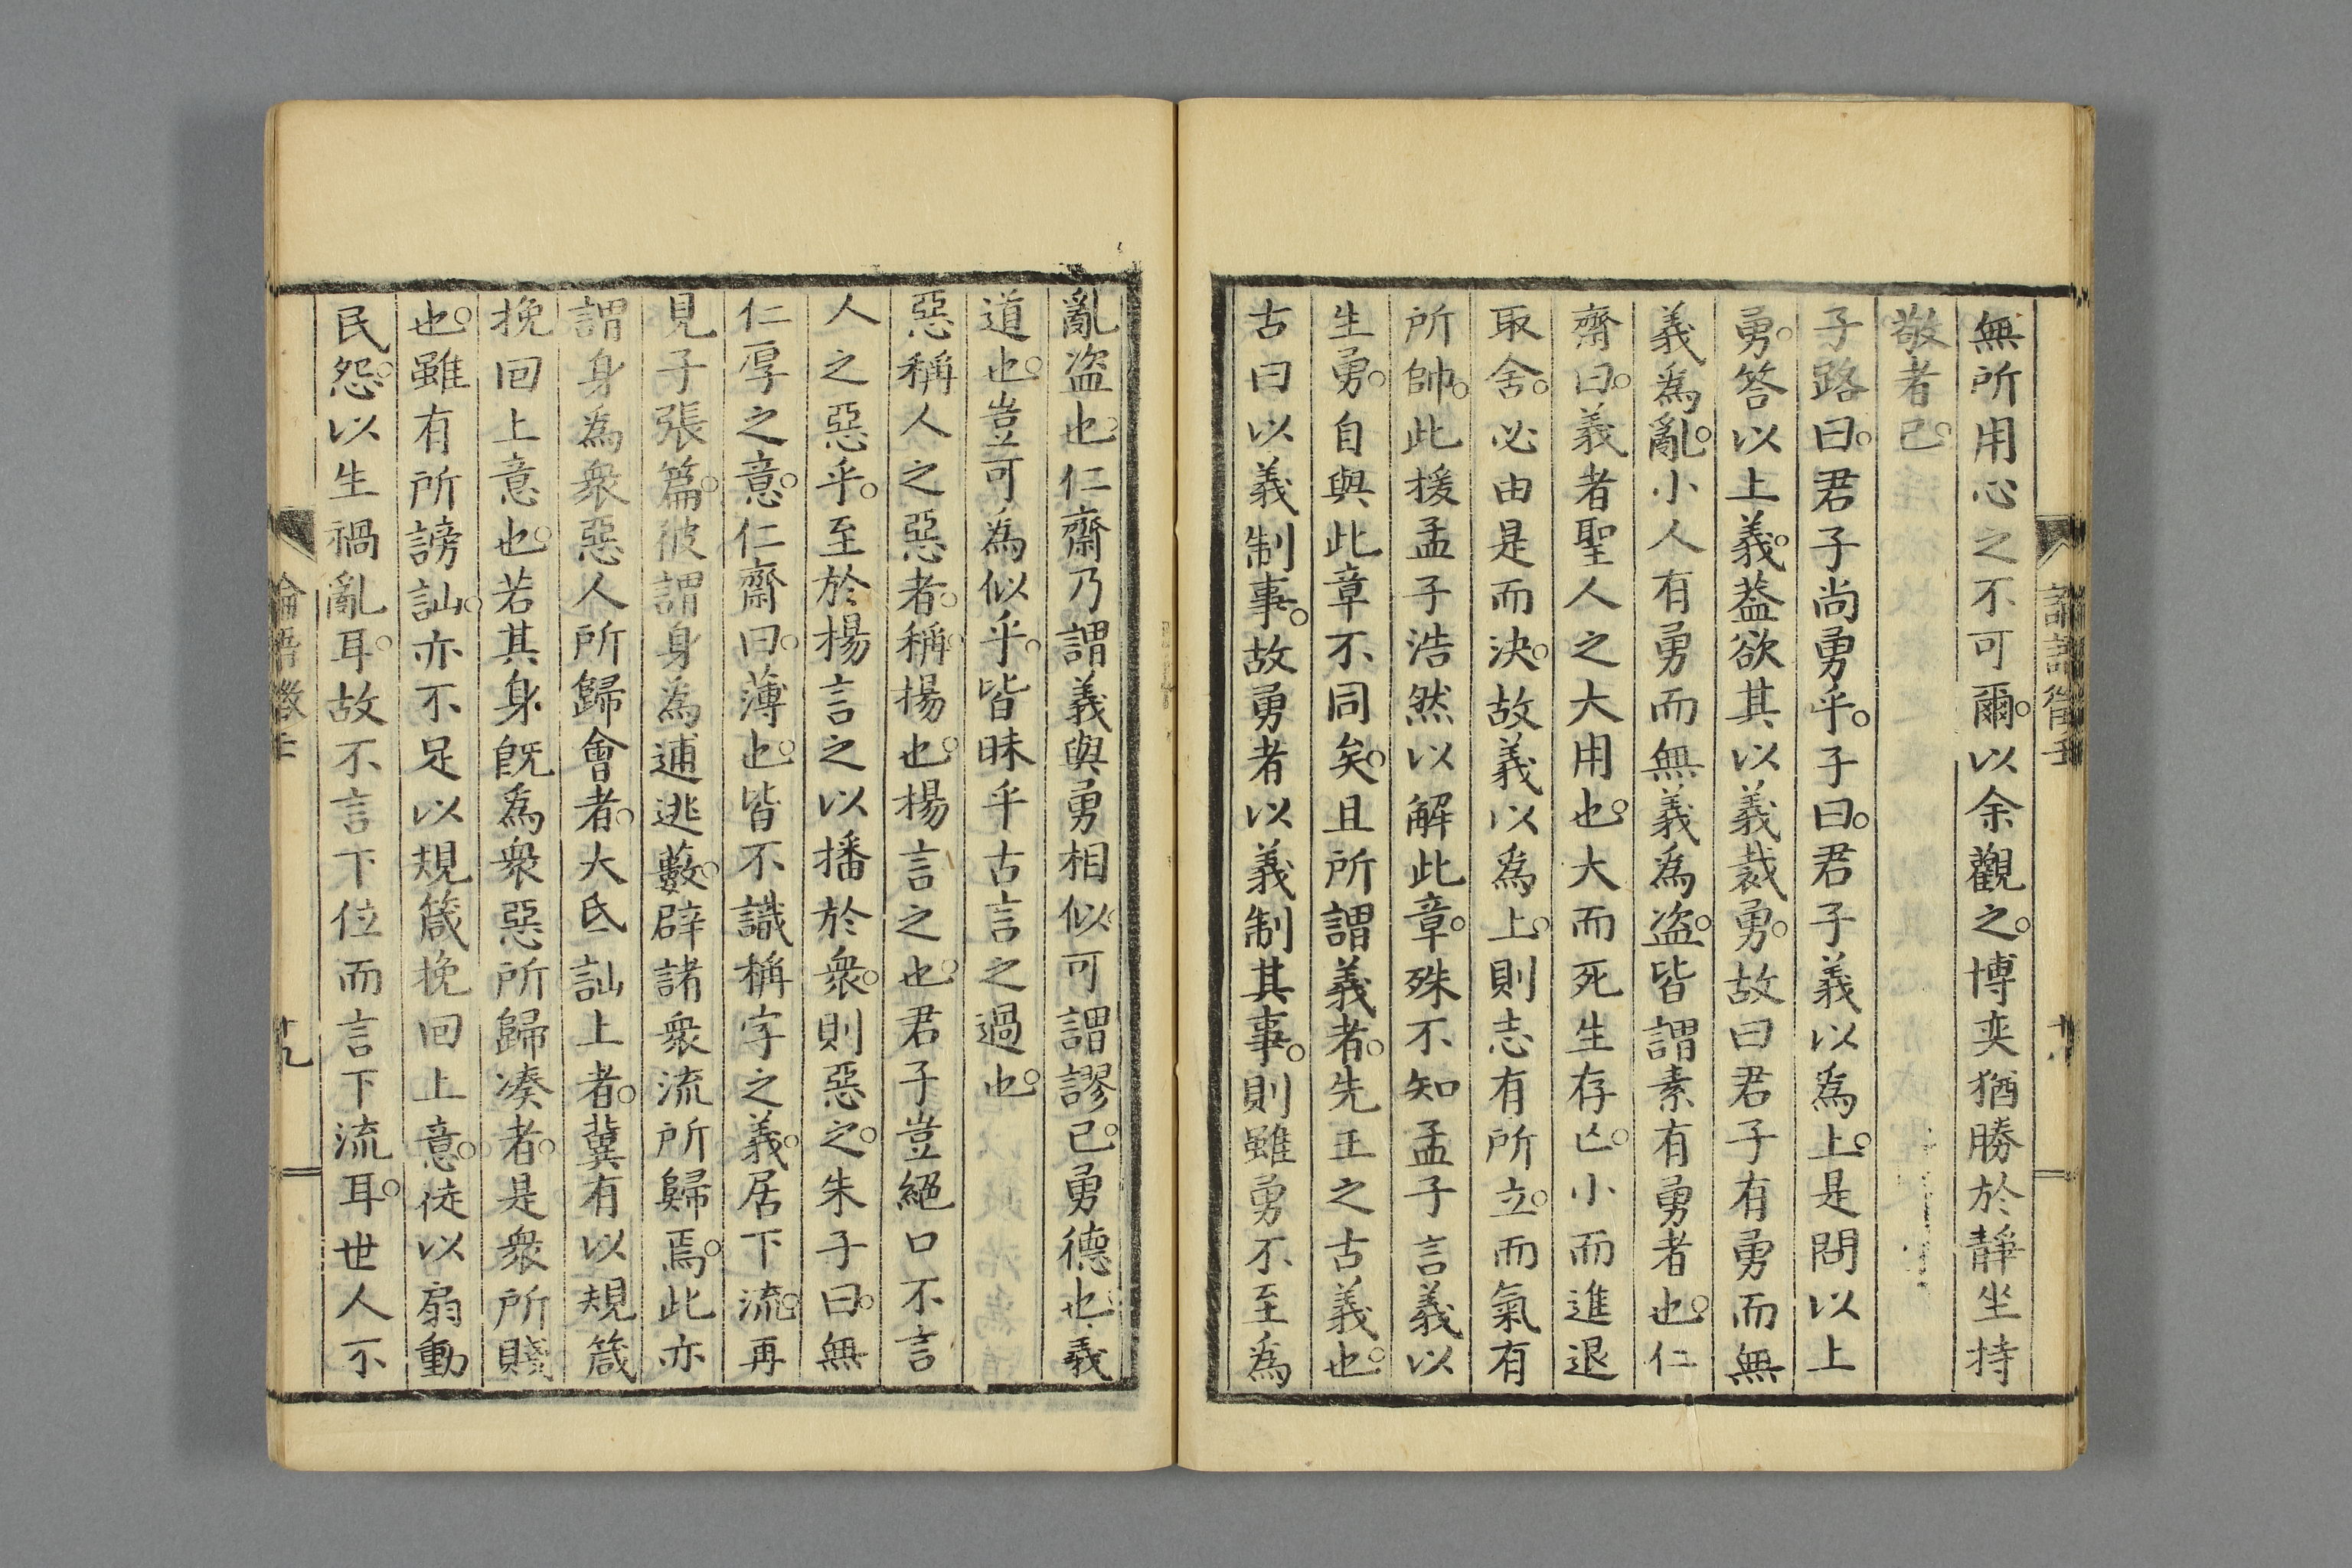 無所用心之不可爾。以余觀之。博奕猶勝於靜坐持
敬者已。
子路曰。君子尚勇乎。子曰。君子義以爲上。是問以上
勇。答以上義。葢欲其以義裁勇。故曰君子有勇而無
義爲亂。小人有勇而無義爲盜。皆謂素有勇者也。仁
齋曰。義者聖人之大用也。大而死生存亡。小而進退
取舍。必由是而決。故義以爲上。則志有所立。而氣有
所帥。此援孟子浩然以解此章。殊不知孟子言義以
生勇。自與此章不同矣。且所謂義者。先王之古義也。
古曰以義制事。故勇者以義制其事。則雖勇不至爲
亂盜也。仁齋乃謂義與勇相似。可謂謬已。勇德也。義
道也。豈可為似乎。皆昧乎古言之過也。
惡稱人之惡者。稱。揚也。揚言之也。君子豈絕口不言
人之惡乎。至於揚言之以播於衆。則惡之。朱子曰。無
仁厚之意。仁齋曰。薄也。皆不識稱字之義。居下流。再
見子張篇。彼謂身為逋逃藪。辟諸衆流所歸焉。此亦
謂身為衆惡人所歸會者。大氐訕上者。冀有以規箴
挽回上意也。若其身旣爲衆惡所歸湊者。是衆所賤
也。雖有所謗訕。亦不足以規箴挽回上意。徒以扇動
民怨。以生禍亂耳。故不言下位而言下流耳。世人不
論語徵壬
十八
論語徵壬
十九